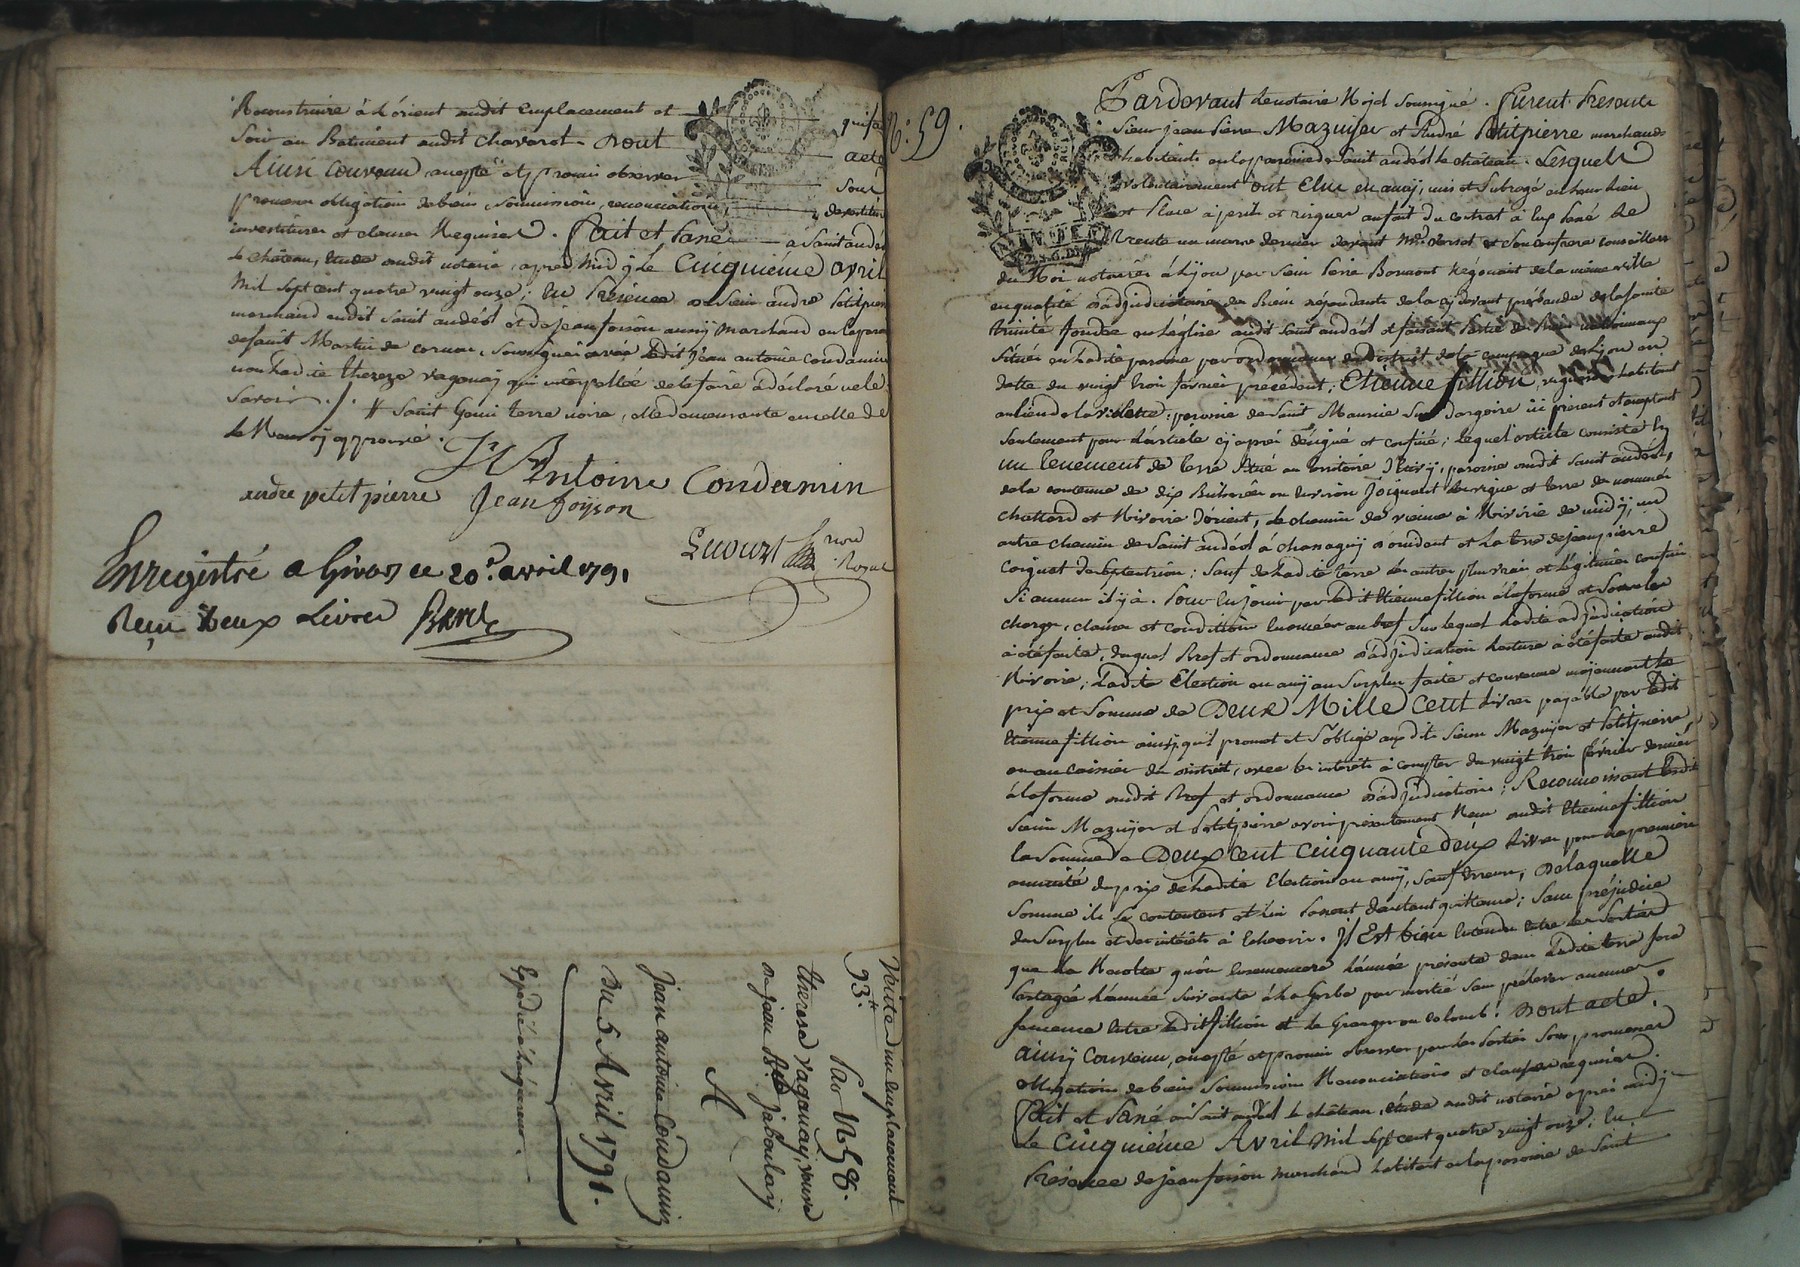 Reconstruire à l'orient audit Emplacement et qui se
Soir au Batiment audit Chavarot. Dont acte
Ainsi convenu, accepté et promis observer sous
promesse obligation de biens, soumissions, renonciations, devestiture
investitures et clauses Requises. Fait et Passé a Saint andéol
le château, étude dudit notaire, après midy le Cinquième avril
Mil Sept cent quatre vingt onze; En Présence de Sieur andré Petitpierre
marchand audit Saint andéol et de Jean foison aussy marchand en la paroisse
de Saint Martin de cornas, Soussignés avec Ledit Jean antoine Condamin
non Ladite thereze ragouay qui interpellée de le faire a déclaré ne le
Savoir ./. # Saint Genis terre noire, elle demeurante en celle de
approuvé.
Jn Antoine Condamin
andre petit pierre Jean foijson
nore Royal
Enregistré a Givors ce 20e. avril 1791
Reçu Deux Livres
Vente un Emplacement
93 tt
Par N 58.
therese ragouay, veuve
de jean Bte. jaboulay
A
Jean antoine Condamin
Du 5 Avril 1791.
Expédié à l'acquéreur.
N: 59.
Pardevant Le notaire Royal Soussigné. Furent Présents
Sieur jean Pierre Mazuyer et André Petitpierre marchands
habitants en la paroisse de Saint andéol le château. Lesquels
volontairement ont Elu en amy, mis et Subrogé en leur Lieu
et Place à perils et risques au fait du contrat à Eux Passé Le
Trente un mars dernier devant Me. et Son confrère conseillers
du Roi notaires à Lyon par Sieur Bonnont Négociant de la même ville
en qualité d'adjudicataire des Biens dépendants de la cydevant prébande de la Sainte
trinité fondée en L'église audit Saint andéol et faisant Partie des Biens nationnaux
Situés en Ladite paroisse par ordonnance du District de la campagne de Lyon en
datte du vingt trois février precedent; Etienne fillion, vigneron habitant
au lieu de la Villette, paroisse de Saint Maurice Sur Dargoire ici présent et acceptant
Seulement pour L'article cy après désigné et confiné; Lequel article consiste En
un tenement de terre Situé au territoire paroisse audit Saint andéol,
de la contenue de dix Bicherées ou Environ Joignant les vigne et terre des nommés
Chattard et Rivoire d'orient, Le chemin de à Rivirie de midy, un
autre chemin de Saint andéol à Chassagny d'occident et La terre de jean pierre
Coignet de Septentrion; Sauf de Ladite terre les autres plus vrais et légitimes confins
Si aucuns il y a. Pour En jouir par Ledit Etienne fillion à la forme et Sous les
charges, clauses et conditions Enoncées au bref Sur lequel Ladite adjudication
a été faite, duquel Bref et ordonnance d'adjudication Lecture a été faite audit
Rivoire; Ladite Election en amy au Surplus faite et convenue moyennant Le
prix et Somme de Deux Mille Cent Livres payable par Ledit
Etienne fillion ainsy qu'il promet et S'oblige auxdits Sieurs Mazuyer et Petitpierre,
ou au caissier du district, avec les interêts à compter du vingt trois février dernier
à la forme audit Bref et ordonnance d'adjudication; Reconnoissant Lesdits
Sieurs Mazuyer et Petitpierre avoir présentement Reçu audit Etienne fillion
la Somme de Deux cent Cinquante deux Livres pour la première
annuité du prix de Ladite Election en amy, Sauf Erreur; De laquelle
Somme ils Se contentent et L'en Passent d'autant quittance; Sans préjudice
du Surplus et des intérêts à Echeoir. Il Est bien Entendu Entre les Parties
que La Recolte qu'on Ensemencera L'année présente dans Ladite terre Sera
Partagée L'année Suivante à La Gerbe par moitié Sans prélever aucune
Semence Entre Ledit fillion et Le Granger ou Colomb. Dont acte.
ainsy Convenu, accepté et promis observer par les Parties Sous promesses
obligations de biens Soumissions Renonciations et clauses requises.
Fait et Passé à Saint andéol le château, étude audit notaire après midy
Le Cinquième Avril Mil Sept cent quatre vingt onze; En
Présence de jean foison marchand habitant en la paroisse de Saint